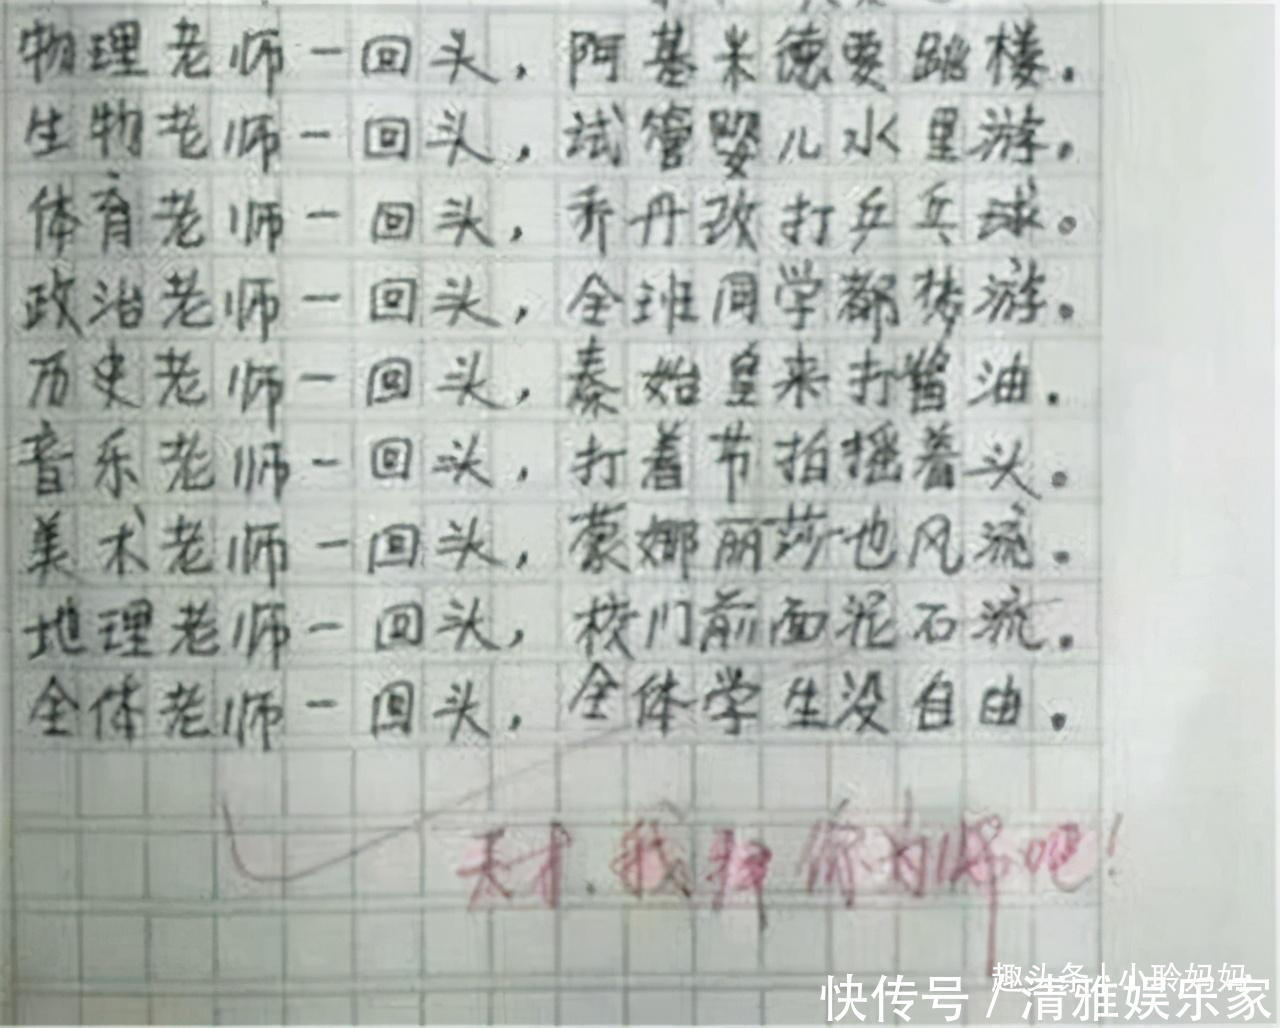 物理老师一回头，阿基米德要跳楼。
生物老师一回头，试管婴儿水里游。
体育老师一回头，乔丹改打乒乓球。
政治老师一回头，全班同学都梦游。
历史老师一回头，秦始皇来打酱油．
音乐老师一回头，打着节拍摇着头。
美术老师一回头，蒙娜丽莎也风流。
地理老师一回头，校门前面泥石流。
全体老师一回头，全体学生没自由。
天才．我拜你为师吧！
趣头条 / 小聆妈妈
快传号 / 清雅娱乐家